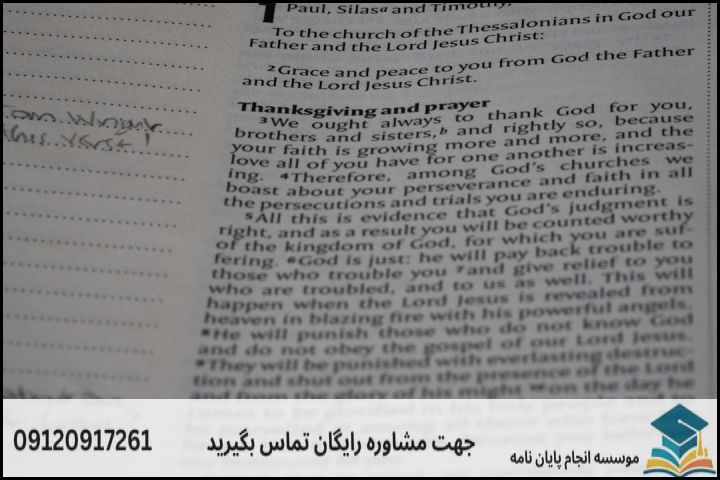 1 Paul, Silasᵃ and Timothy,
To the church of the Thessalonians in God our
Father and the Lord Jesus Christ:
2 Grace and peace to you from God the Father
and the Lord Jesus Christ.
Thanksgiving and prayer
3 We ought always to thank God for you,
brothers and sisters,ᵇ and rightly so, because
your faith is growing more and more, and the
love all of you have for one another is increas-
ing. 4 Therefore, among God's churches we
boast about your perseverance and faith in all
the persecutions and trials you are enduring.
5 All this is evidence that God's judgment is
right, and as a result you will be counted worthy
of the kingdom of God, for which you are suf-
fering. 6 God is just: he will pay back trouble to
those who trouble you 7 and give relief to you
who are troubled, and to us as well. This will
happen when the Lord Jesus is revealed from
heaven in blazing fire with his powerful angels.
8 He will punish those who do not know God
and do not obey the gospel of our Lord Jesus.
9 They will be punished with everlasting destruc-
tion and shut out from the presence of the Lord
and from the glory of his might 10 on the day he
this verse!
جهت مشاوره رایگان تماس بگیرید
09120917261
موسسه انجام پایان نامه